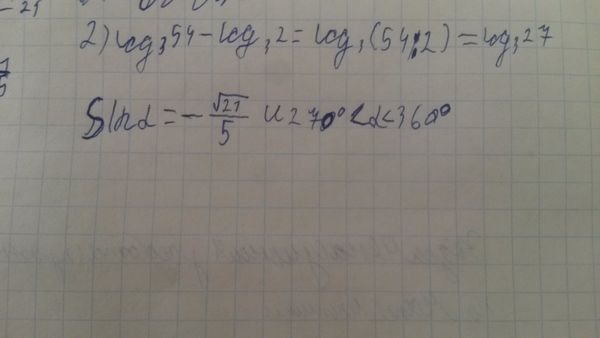 -25
2) log₃54-log₃2=log₃(54:2)=log₃27
Sinα=-√21/5 и 270°<α<360°